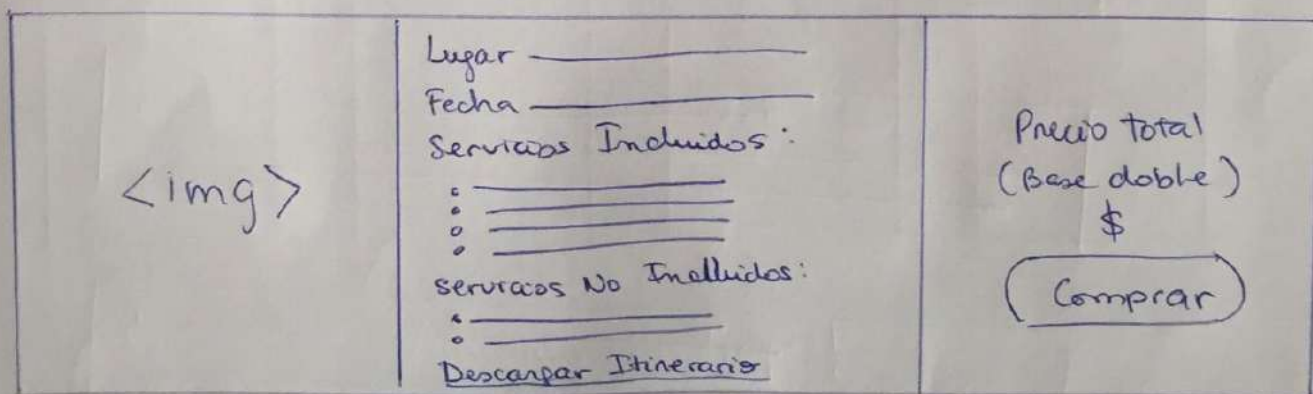 <img>
Lugar
Fecha
Servicios Incluidos:
servicios No Inclluidos:
Descargar Itinerario
Precio total
(Base doble)
$
Comprar